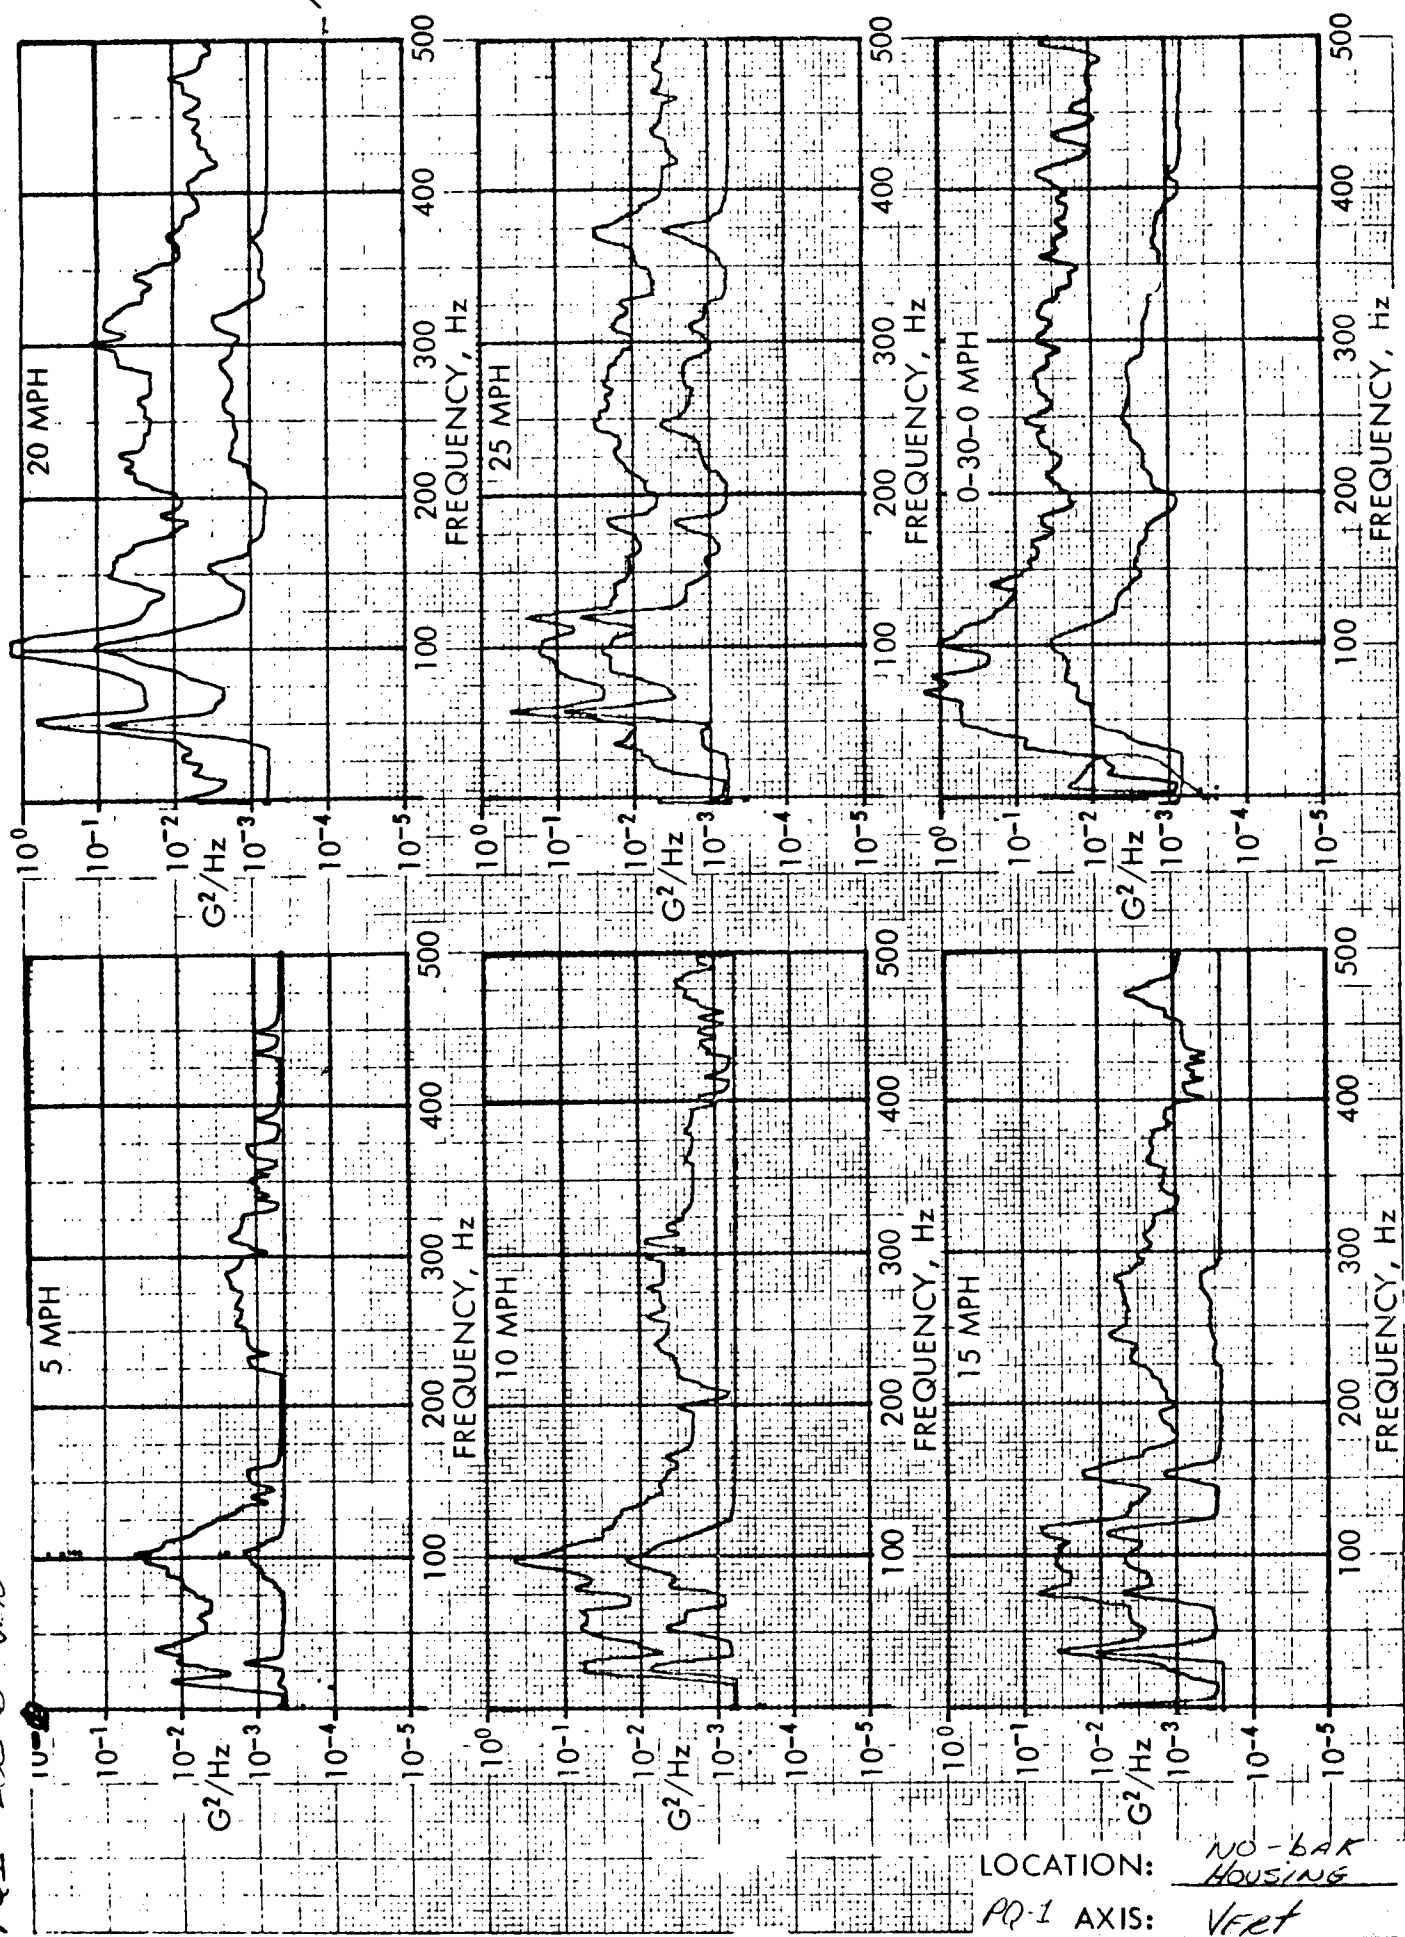 5 MPH
10⁻¹
10⁻²
G²/Hz
10⁻³
10⁻⁴
10⁻⁵
100 200 300 400 500
FREQUENCY, Hz
10 MPH
10⁰
10⁻¹
10⁻²
G²/Hz
10⁻³
10⁻⁴
10⁻⁵
100 200 300 400 500
FREQUENCY, Hz
15 MPH
10⁰
10⁻¹
10⁻²
G²/Hz
10⁻³
10⁻⁴
10⁻⁵
100 200 300 400 500
FREQUENCY, Hz
20 MPH
10⁰
10⁻¹
10⁻²
G²/Hz
10⁻³
10⁻⁴
10⁻⁵
100 200 300 400 500
FREQUENCY, Hz
25 MPH
10⁰
10⁻¹
10⁻²
G²/Hz
10⁻³
10⁻⁴
10⁻⁵
100 200 300 400 500
FREQUENCY, Hz
0-30-0 MPH
10⁰
10⁻¹
10⁻²
G²/Hz
10⁻³
10⁻⁴
10⁻⁵
100 200 300 400 500
FREQUENCY, Hz
LOCATION: NO-bAK
HOUSING
PQ-1 AXIS: VERt